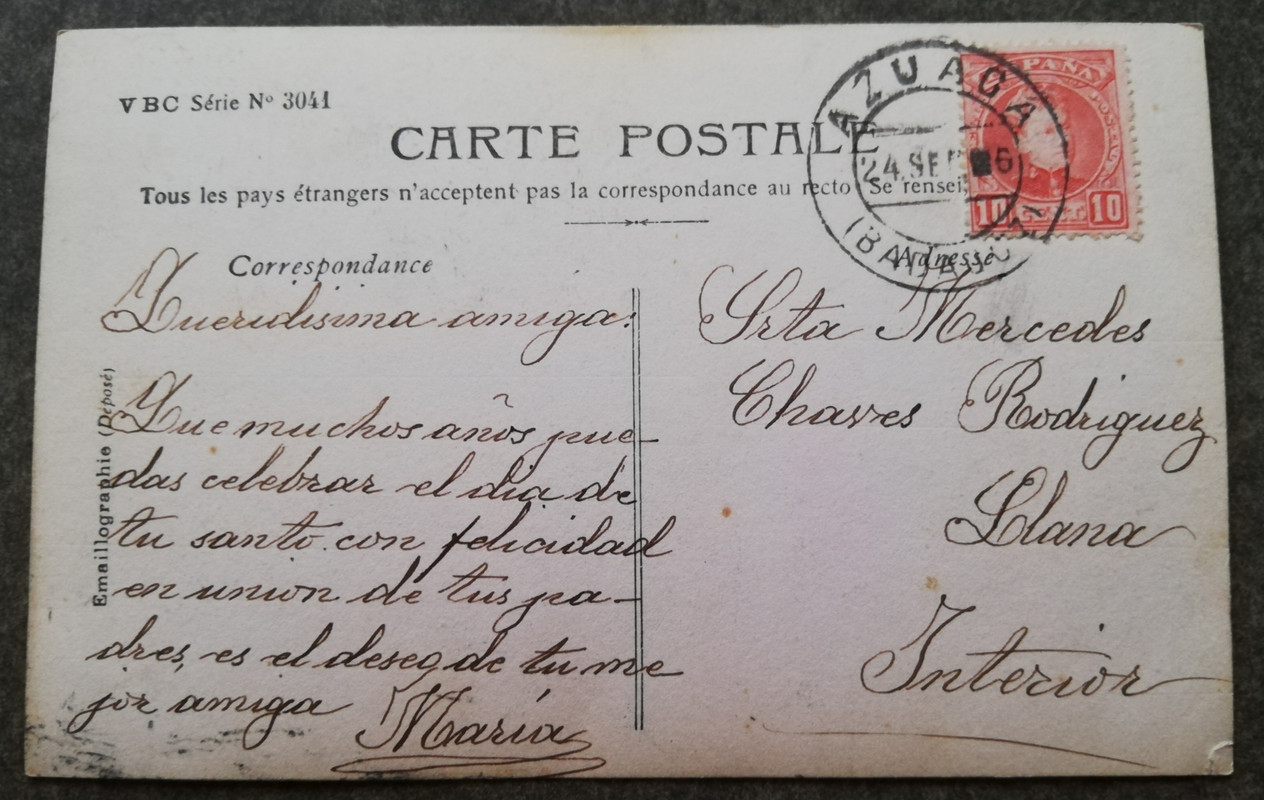 VBC Série Nº 3041
CARTE POSTALE
Tous les pays étrangers n'acceptent pas la correspondance au recto Se rensei
Correspondance
Adresse
Emaillographie (Déposé)
AZUAGA
24.SEP 6
(BADAJOZ)
ESPAÑA
10 CENT 10
Queridisima amiga:
Que muchos años pue-
das celebrar el dia de
tu santo con felicidad
en union de tus pa-
dres, es el deseo de tu me
jor amiga
María
Srta Mercedes
Chaves Rodriguez
Llana
Interior